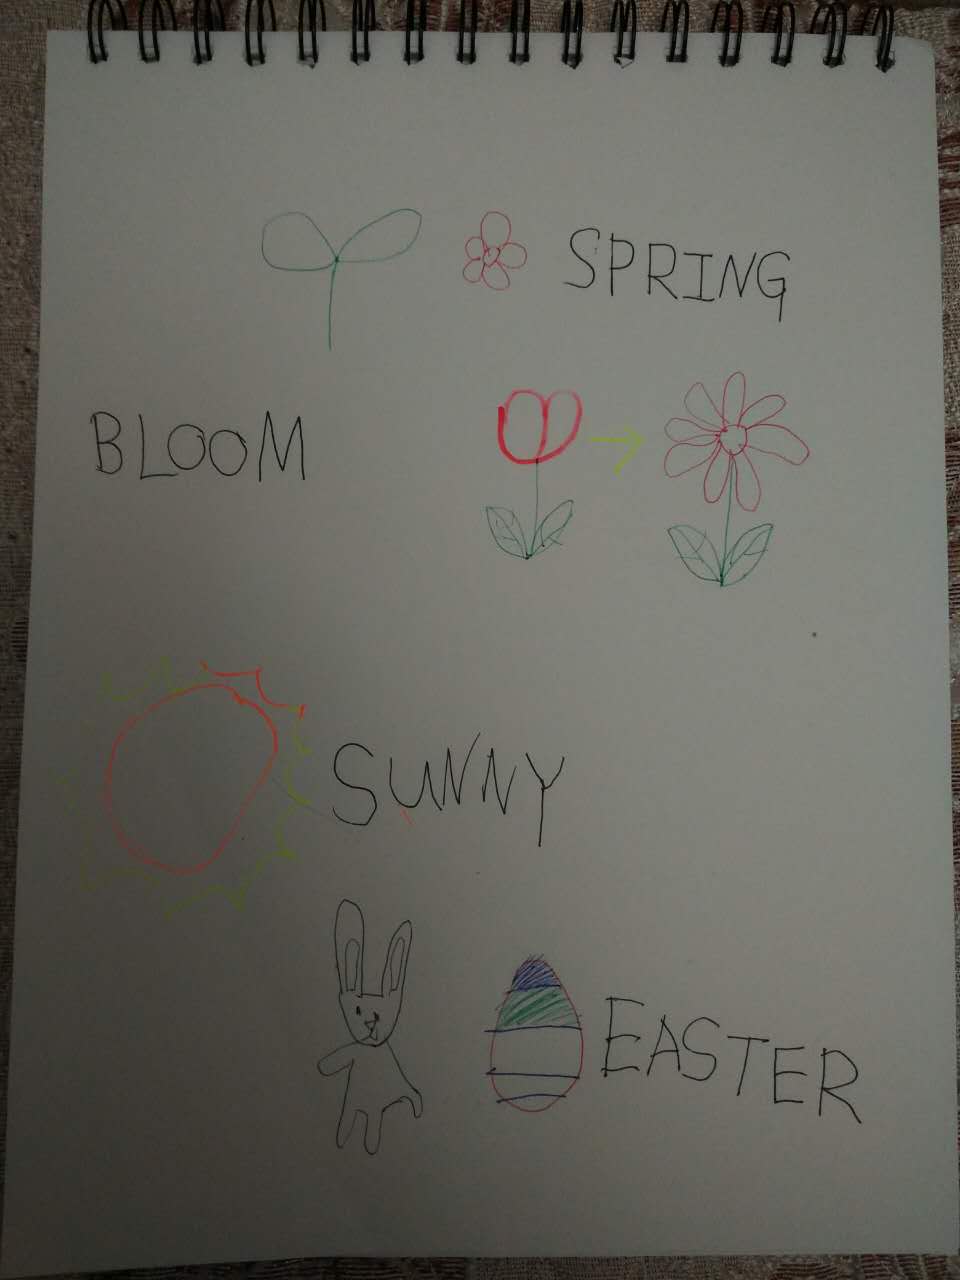 SPRING
BLOOM
SUNNY
EASTER